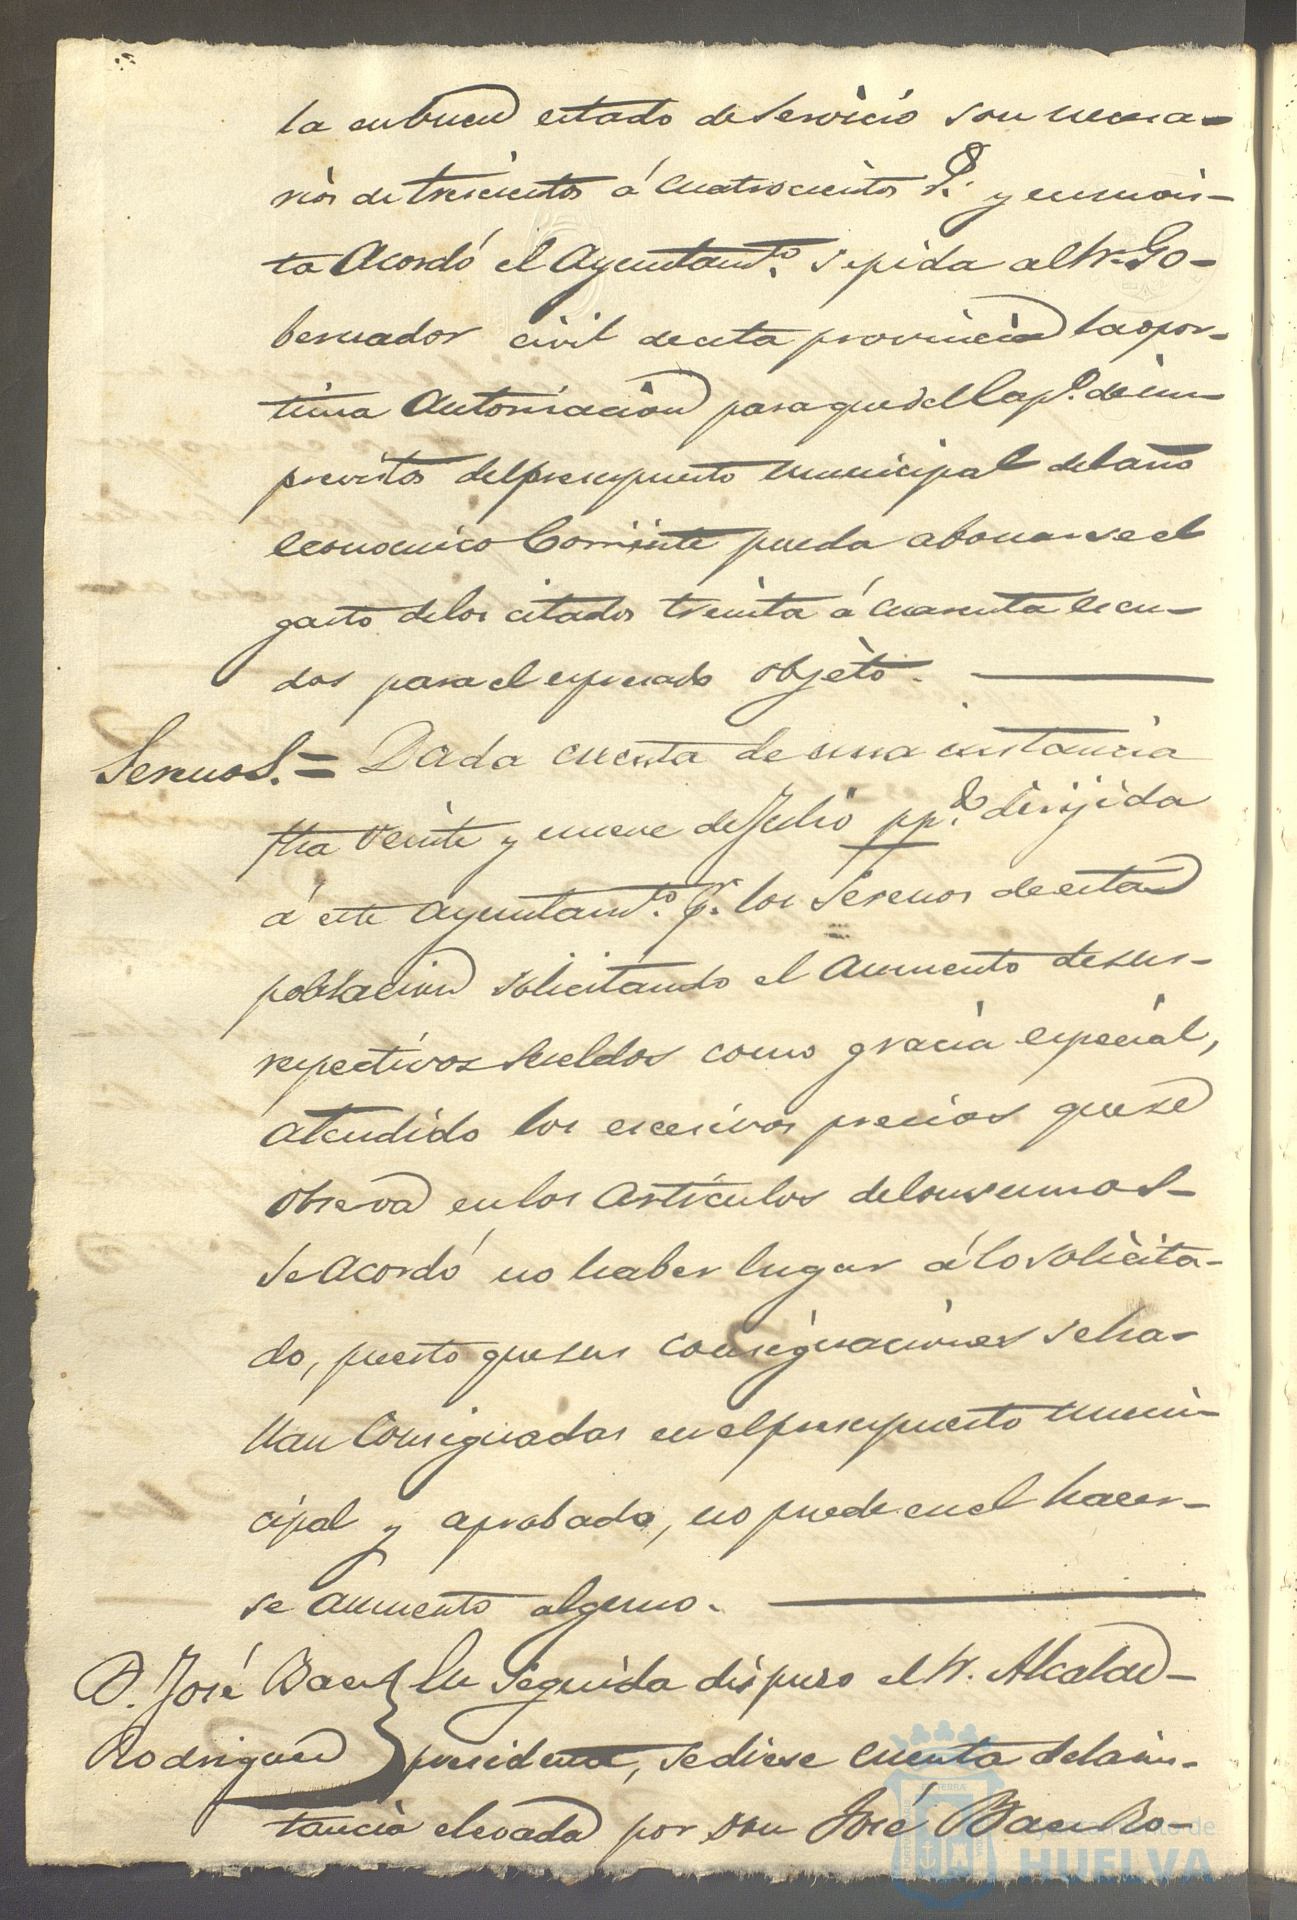 la en buen estado de servicio son necesa-
rios de trescientos á cuatrocientos R.^s y en su vis-
ta Acordó el Ayuntam.^to se pida al Sr. Go-
bernador civil de esta provincia la opor-
tuna Autorizacion para que del Cap.^o de im-
previstos del presupuesto municipal del año
economico Corriente pueda abonarse el
gasto de los citados treinta á cuarenta escu-
dos para el espresado objeto.
Serenos. = Dada cuenta de una instancia
fha veinte y nueve de Julio pp.^do dirijida
á este Ayuntam.^to p.^r los Serenos de esta
poblacion solicitando el Aumento de sus
respectivos sueldos como gracia especial,
atendido los escesivos precios que se
observa en los Artículos de consumos-
Se Acordó no haber lugar á lo solicita-
do, puesto que sus consignaciones se ha-
llan Consignadas en el presupuesto muni-
cipal y aprobado, no puede en el hacer-
se aumento alguno.
D. José Baez En seguida dispuso el Sr. Alcalde
Rodriguez presidente, se diese cuenta de la ins-
tancia elevada por don José Baez Ro-
Ayuntamiento de
HUELVA